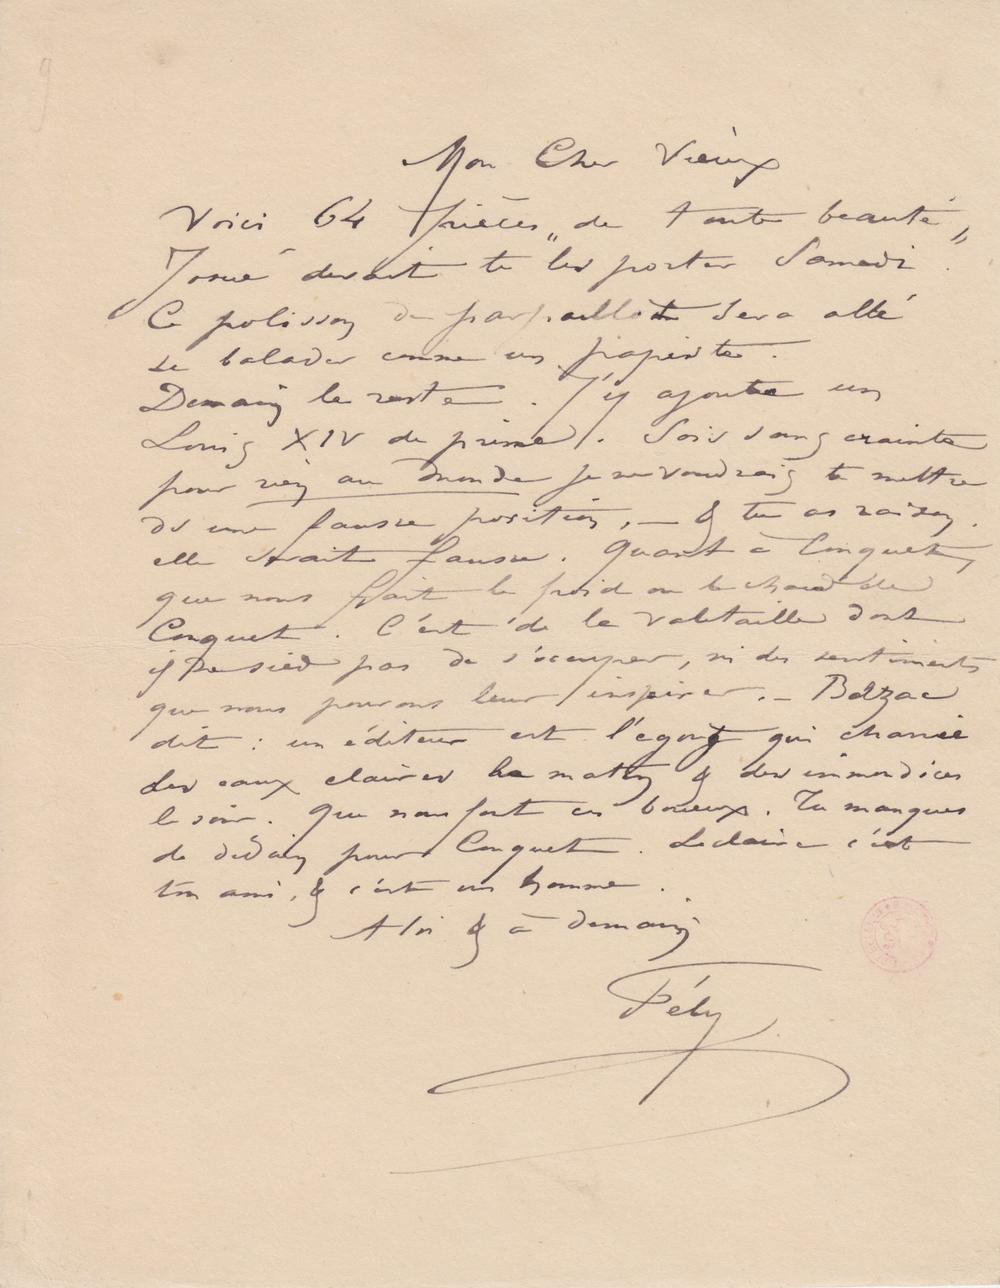 Mon Cher Vieux
Voici 64 pièces „ de toute beauté „
Josué devait te les porter Samedi.
Ce polisson de parpaillot sera allé
se balader comme un papiste.
Demain le reste. J'y ajoute un
Louis XIV de prime. Sois sans crainte
pour rien au monde je ne voudrais te mettre
ds une fausse position, — & tu as raison.
elle serait fausse. Quant à Conquet,
que nous fait le froid ou le chaud de
Conquet. C'est de la valetaille dont
il ne sied pas de s'occuper, ni des sentiments
que nous pouvons leur inspirer. — Balzac
dit : un éditeur est l'égout qui charrie
des eaux claires le matin & des immondices
le soir. Que nous font ces boueux. Tu manques
de dédain pour Conquet. Leclaire c'est
ton ami, & c'est un homme.
A toi & à demain
Fély